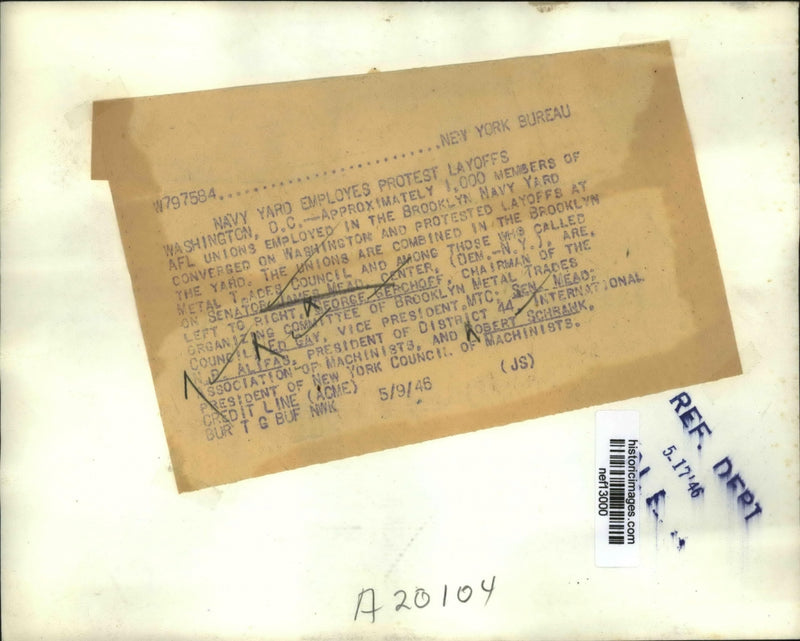 W797584........................NEW YORK BUREAU
NAVY YARD EMPLOYES PROTEST LAYOFFS
WASHINGTON, D.C.--APPROXIMATELY 1,000 MEMBERS OF
AFL UNIONS EMPLOYED IN THE BROOKLYN NAVY YARD
CONVERGED ON WASHINGTON AND PROTESTED LAYOFFS AT
THE YARD. THE UNIONS ARE COMBINED IN THE BROOKLYN
METAL TRADES COUNCIL AND AMONG THOSE WHO CALLED
ON SENATOR JAMES MEAD, CENTER, (DEM.-N.Y.), ARE,
LEFT TO RIGHT, GEORGE CHAIRMAN OF THE
ORGANIZING COMMITTEE OF BROOKLYN METAL TRADES
COUNCIL; ED GAY, VICE PRESIDENT, MTC; SEN. MEAD;
ALIFAS, PRESIDENT OF DISTRICT 44, INTERNATIONAL
SSOCIATION OF MACHINISTS, AND ROBERT SCHRANK,
PRESIDENT OF NEW YORK COUNCIL OF MACHINISTS.
CREDIT LINE (ACME) 5/9/46 (JS)
BUR T G BUF NWK
REF. DEPT
5-17-46
historicimages.com
nef13000
A20104